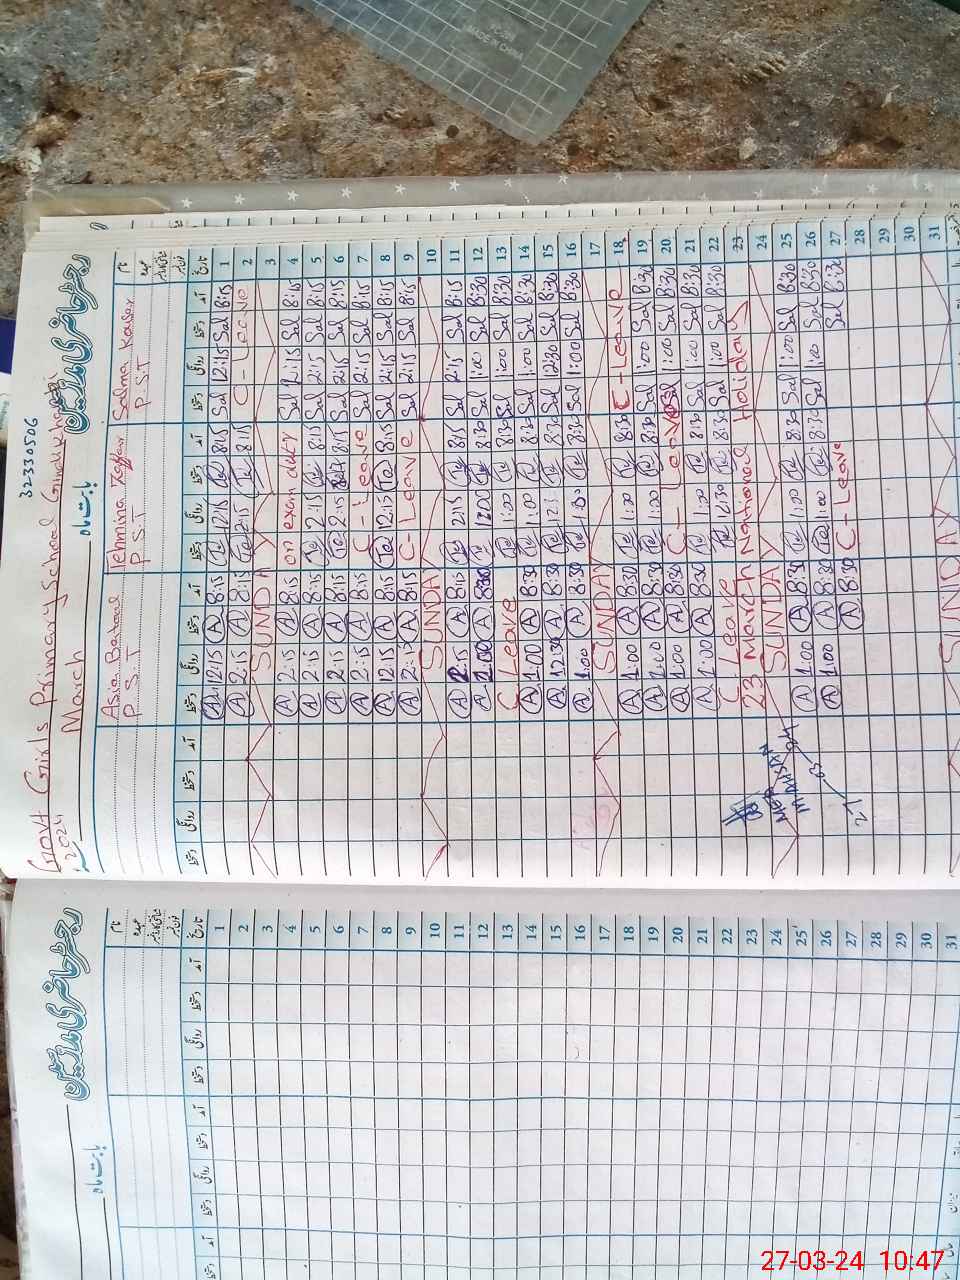 32330506
Govt Girls Primary School
March 2024
بابت ماہ
رجسٹر حاضری مدارسین
Asia Batool Tehmina Zaffar Salma Kousar نام
P.S.T P.S.T P.S.T عہدہ
دستخط روانگی دستخط آمد دستخط روانگی دستخط آمد دستخط روانگی دستخط آمد دستخط روانگی دستخط آمد تاریخ
A 12:15 A 8:15 Te 12:15 Te 8:15 Sal 12:15 Sal 8:15 1
A 2:15 A 8:15 Te 2:15 Te 8:15 C-Leave 2
SUNDAY 3
A 2:15 A 8:15 on exam duty Sal 2:15 Sal 8:15 4
A 2:15 A 8:15 Te 2:15 Te 8:15 Sal 2:15 Sal 8:15 5
A 2:15 A 8:15 Te 2:15 8:15 Sal 2:15 Sal 8:15 6
A 2:15 A 8:15 C-Leave Sal 2:15 Sal 8:15 7
A 12:15 A 8:15 Te 12:15 Te 8:15 Sal 2:15 Sal 8:15 8
A 2:15 A 8:15 C-Leave Sal 2:15 Sal 8:15 9
SUNDAY 10
A 2:15 A 8:15 Te 2:15 Te 8:15 Sal 2:15 Sal 8:15 11
A 1:00 A 8:30 Te 1:00 Te 8:30 Sal 1:00 Sal 8:30 12
C Leave Te 1:00 Te 8:30 Sal 1:00 Sal 8:30 13
A 1:00 A 8:30 Te 1:00 Te 8:30 Sal 1:00 Sal 8:30 14
A 12:30 A 8:30 Te Te 8:30 Sal 12:30 Sal 8:30 15
A 1:00 A 8:30 Te 1:00 Te 8:30 Sal 1:00 Sal 8:30 16
SUNDAY 17
A 1:00 A 8:30 Te 1:00 Te 8:30 C-Leave 18
A 1:00 A 8:30 Te 1:00 Te 8:30 Sal 1:00 Sal 8:30 19
A 1:00 A 8:30 C-Leave Sal 1:00 Sal 8:30 20
A 1:00 A 8:30 Te 1:00 Te 8:30 Sal 1:00 Sal 8:30 21
C Leave Te 12:30 Te 8:30 Sal 1:00 Sal 8:30 22
23 March National Holiday 23
SUNDAY 24
A 1:00 A 8:30 Te 1:00 Te 8:30 Sal 1:00 Sal 8:30 25
A 1:00 A 8:30 Te 1:00 Te 8:30 Sal 1:00 Sal 8:30 26
A 8:30 C-Leave Sal 8:30 27
28
29
30
SUNDAY 31
27-03-24
رجسٹر حاضری مدارسین
بابت ماہ
نام
عہدہ
دستخط روانگی دستخط آمد دستخط روانگی دستخط آمد تاریخ
1
2
3
4
5
6
7
8
9
10
11
12
13
14
15
16
17
18
19
20
21
22
23
24
25
26
27
28
29
30
31
MADE IN CHINA
27-03-24 10:47